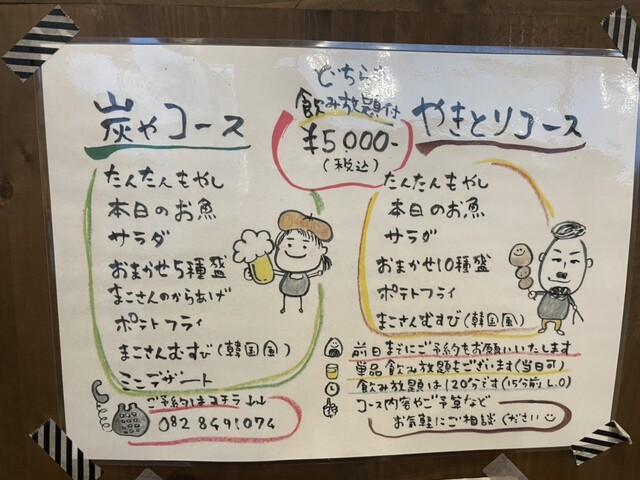 どちらも
飲み放題付
¥5,000-
(税込)
炭やコース
たんたんもやし
本日のお魚
サラダ
おまかせ5種盛
まこさんのからあげ
ポテトフライ
まこさんむすび(韓国風)
ミニデザート
ご予約はコチラ
やきとりコース
たんたんもやし
本日のお魚
サラダ
おまかせ10種盛
ポテトフライ
まこさんむすび(韓国風)
前日までにご予約をお願いいたします
単品飲み放題もございます(当日可)
飲み放題は120分です(15分前L.O)
コース内容やご予算など
お気軽にご相談ください